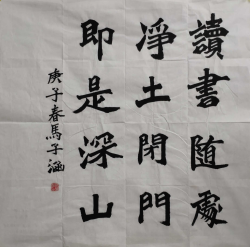 讀書随處
凈土閉門
即是深山
庚子春馬子涵